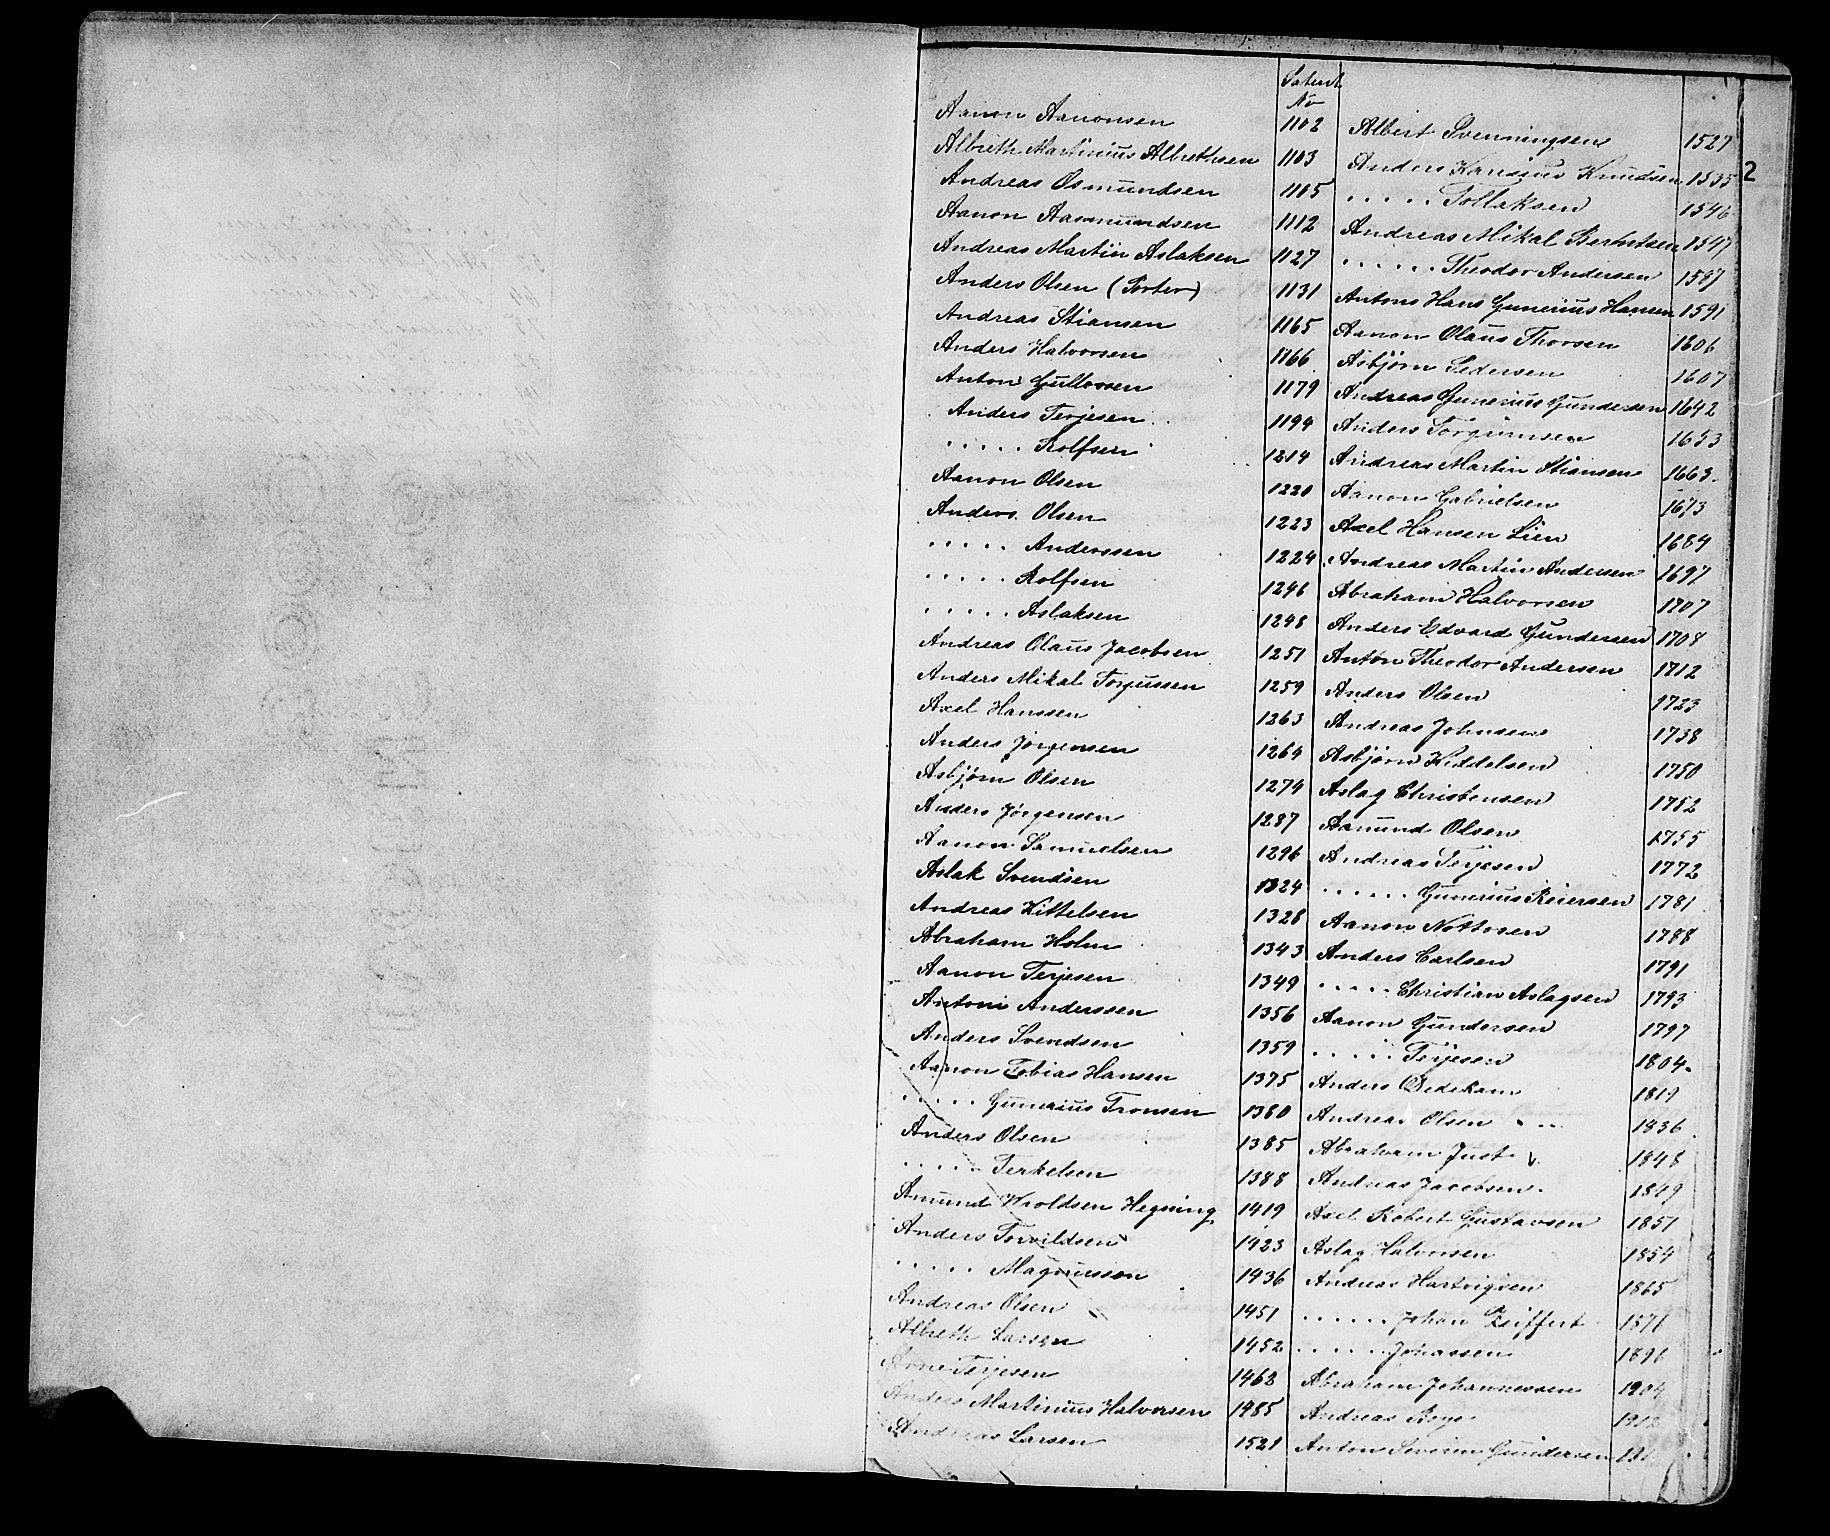 Patent
No
2
Aanon Aanonsen 1102
Albreth Martinius Albrethsen 1103
Andreas Osmundsen 1105
Aanon Aasmundsen 1112
Andreas Martin Aslaksen 1127
Anders Olsen (Porter) 1131
Andreas Stiansen 1165
Anders Halvorsen 1166
Anton Gullovsen 1179
Anders Terjesen 1194
..... Rolfsen 1214
Aanon Olsen 1220
Anders Olsen 1223
..... Anderssen 1224
..... Rolfsen 1246
..... Aslaksen 1248
Andreas Olaus Jacobsen 1251
Anders Mikal Torjussen 1259
Axel Hanssen 1263
Anders Jørgensen 1264
Asbjørn Olsen 1274
Anders Jørgensen 1287
Aanon Samuelsen 1296
Aslak Svendsen 1324
Andreas Kittelsen 1328
Abraham Holm 1343
Aanon Terjesen 1349
Antoni Anderssen 1356
Anders Svendsen 1359
Aanon Tobias Hansen 1375
..... Gunerius Tronsen 1380
Anders Olsen 1385
..... Terkelsen 1388
Amund Wroldsen Hegning 1419
Anders Torvildsen 1423
..... Magnussen 1436
Andreas Olsen 1451
Albreth Larsen 1452
Arne Terjesen 1462
Anders Martinius Halvorsen 1485
Andreas Larsen 1521
Albert Svenningsen 1527
Anders Hansius Knudsen 1535
..... Tollaksen 1546
Andreas Mikal Berntsen 1547
...... Theodor Andersen 1587
Antons Hans Gunerius Hansen 1591
Aanon Olaus Thorsen 1606
Asbjørn Pedersen 1607
Andreas Gunerius Gundersen 1642
Anders Torgrimsen 1653
Andreas Martin Stiansen 1663
Aanon Gabrielsen 1673
Axel Hansen Lien 1684
Andreas Martin Andersen 1697
Abraham Halvorsen 1707
Anders Edvard Gundersen 1708
Anton Theodor Andersen 1712
Anders Olsen 1723
Andreas Johnsen 1738
Asbjørn Kiddelsen 1750
Aslag Christensen 1752
Aanund Olsen 1755
Andreas Terjesen 1772
...... Gunerius Reiersen 1781
Aanon Nottosen 1788
Anders Carlsen 1791
..... Christian Aslagsen 1793
Aanon Gundersen 1797
..... Terjesen 1804
Anders Dedekam 1819
Andreas Olsen 1836
Abraham Just 1848
Andreas Jacobsen 1849
Axel Robert Gustavsen 1851
Aslag Halvorsen 1854
Andreas Hartvigsen 1865
...... Johan Zeiffert 1871
...... Johassen 1896
Abraham Johannessen 1904
Andreas Boye
Anton Severin Gundersen